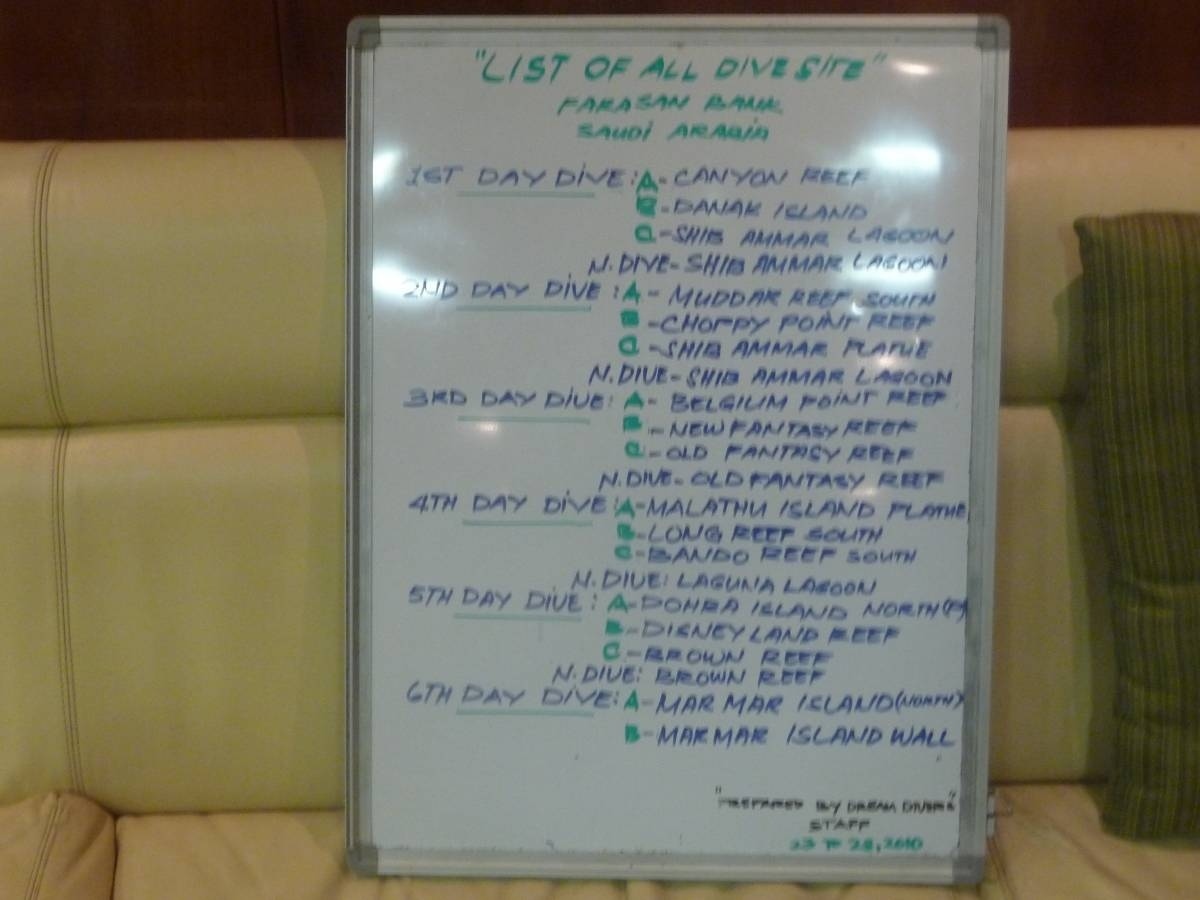 "LIST OF ALL DIVE SITE"
FARASAN BANK
SAUDI ARABIA
1ST DAY DIVE: A- CANYON REEF
B- DANAK ISLAND
C- SHIB AMMAR LAGOON
N. DIVE- SHIB AMMAR LAGOON
2ND DAY DIVE: A- MUDDAR REEF SOUTH
B- CHOPPY POINT REEF
C- SHIB AMMAR PLATHE
N. DIVE- SHIB AMMAR LAGOON
3RD DAY DIVE: A- BELGIUM POINT REEF
B- NEW FANTASY REEF
C- OLD FANTASY REEF
N. DIVE- OLD FANTASY REEF
4TH DAY DIVE: A- MALATHU ISLAND PLATHE
B- LONG REEF SOUTH
C- BANDO REEF SOUTH
N. DIVE: LAGUNA LAGOON
5TH DAY DIVE: A- DOHRA ISLAND NORTH(P)
B- DISNEYLAND REEF
C- BROWN REEF
N. DIVE: BROWN REEF
6TH DAY DIVE: A- MAR MAR ISLAND (NORTH)
B- MARMAR ISLAND WALL
"PREPARED BY DREAM DIVERS"
STAFF
23 TO 28, 2010